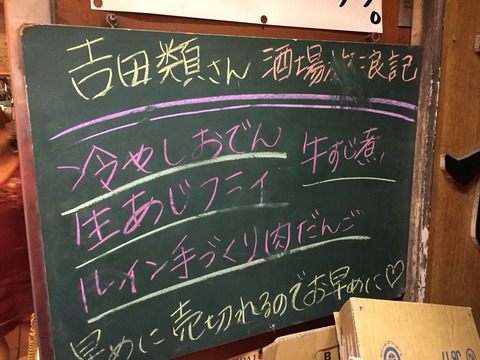 吉田類さん 酒場放浪記
冷やしおでん 牛すじ煮
生あじフライ
ルイン手づくり肉だんご
早めに売切れるのでお早めに♡